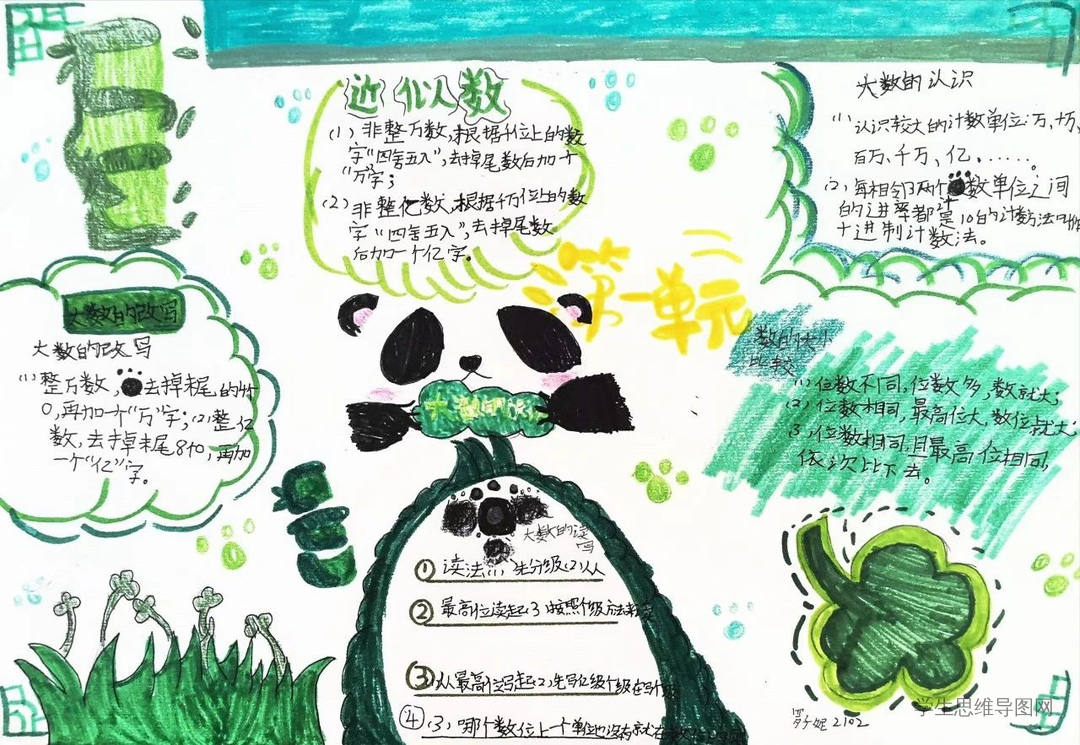 近似数
(1) 非整万数,根据千位上的数
字“四舍五入”,去掉尾数后加一个
“万”字;
(2) 非整亿数,根据千万位上的数
字“四舍五入”,去掉尾数
后加一个亿字。
大数的认识
(1) 认识较大的计数单位:万、十万、
百万、千万、亿。......
(2) 每相邻两个计数单位之间
的进率都是10的计数方法叫做
十进制计数法。
第一单元
大数的改写
大数的改写
(1) 整万数,去掉末尾的
0,再加一个“万”字;(2)整亿
数,去掉末尾8个0,再加
一个“亿”字。
数的大小
比较
(1) 位数不同,位数多,数就大;
(2) 位数相同,最高位大,数位就大;
3,位数相同,且最高位相同,
依次比下去。
大数的认识
大数的读
写
① 读法(1)先分级(2)从
② 最高位读起(3)按照个级方法
③ 从最高位写起(2)先写亿级
④ (3)哪个数位上一个单位也没有就在
2102
学生思维导图网